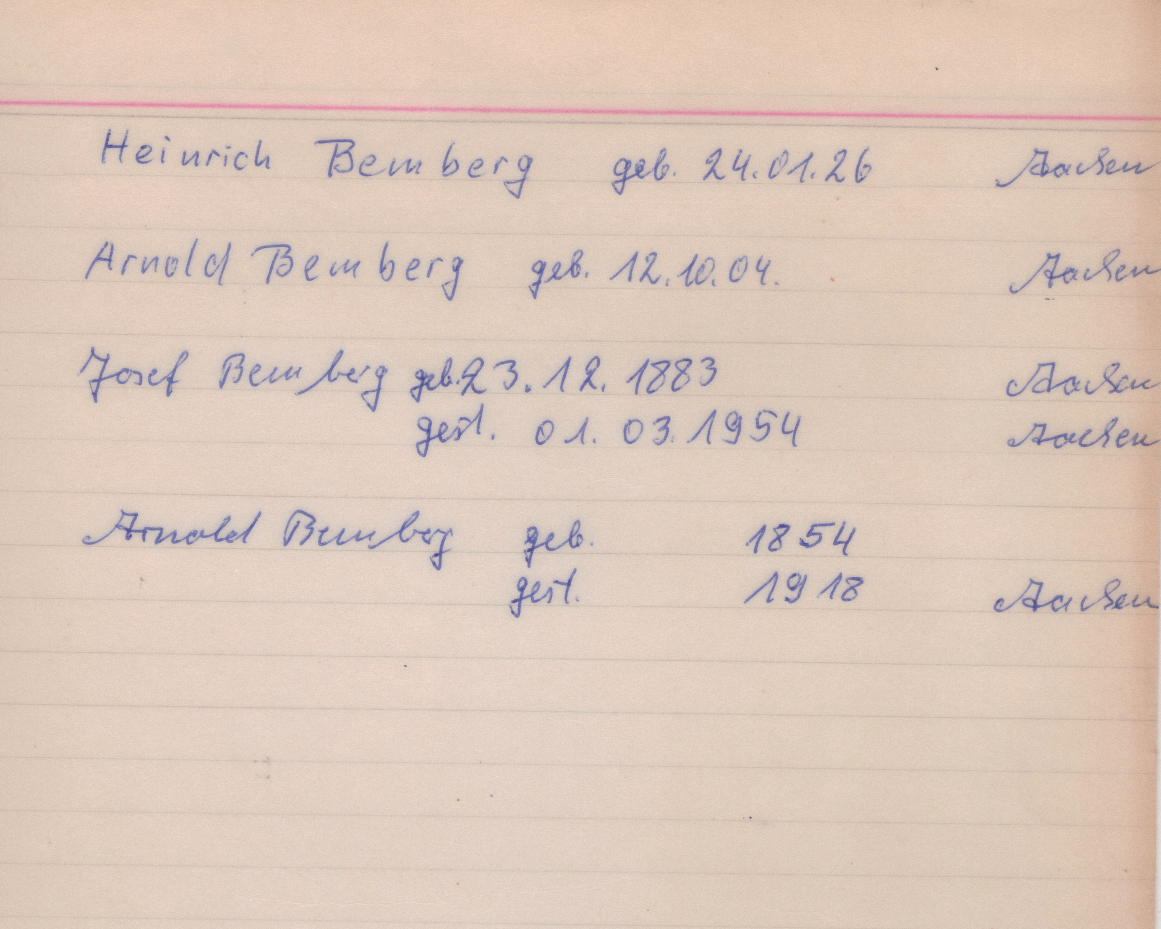 Heinrich Bemberg geb. 24.01.26 Aachen
Arnold Bemberg geb. 12.10.04. Aachen
Josef Bemberg geb. 23.12.1883 Aachen
gest. 01.03.1954 Aachen
Arnold Bemberg geb. 1854
gest. 1918 Aachen